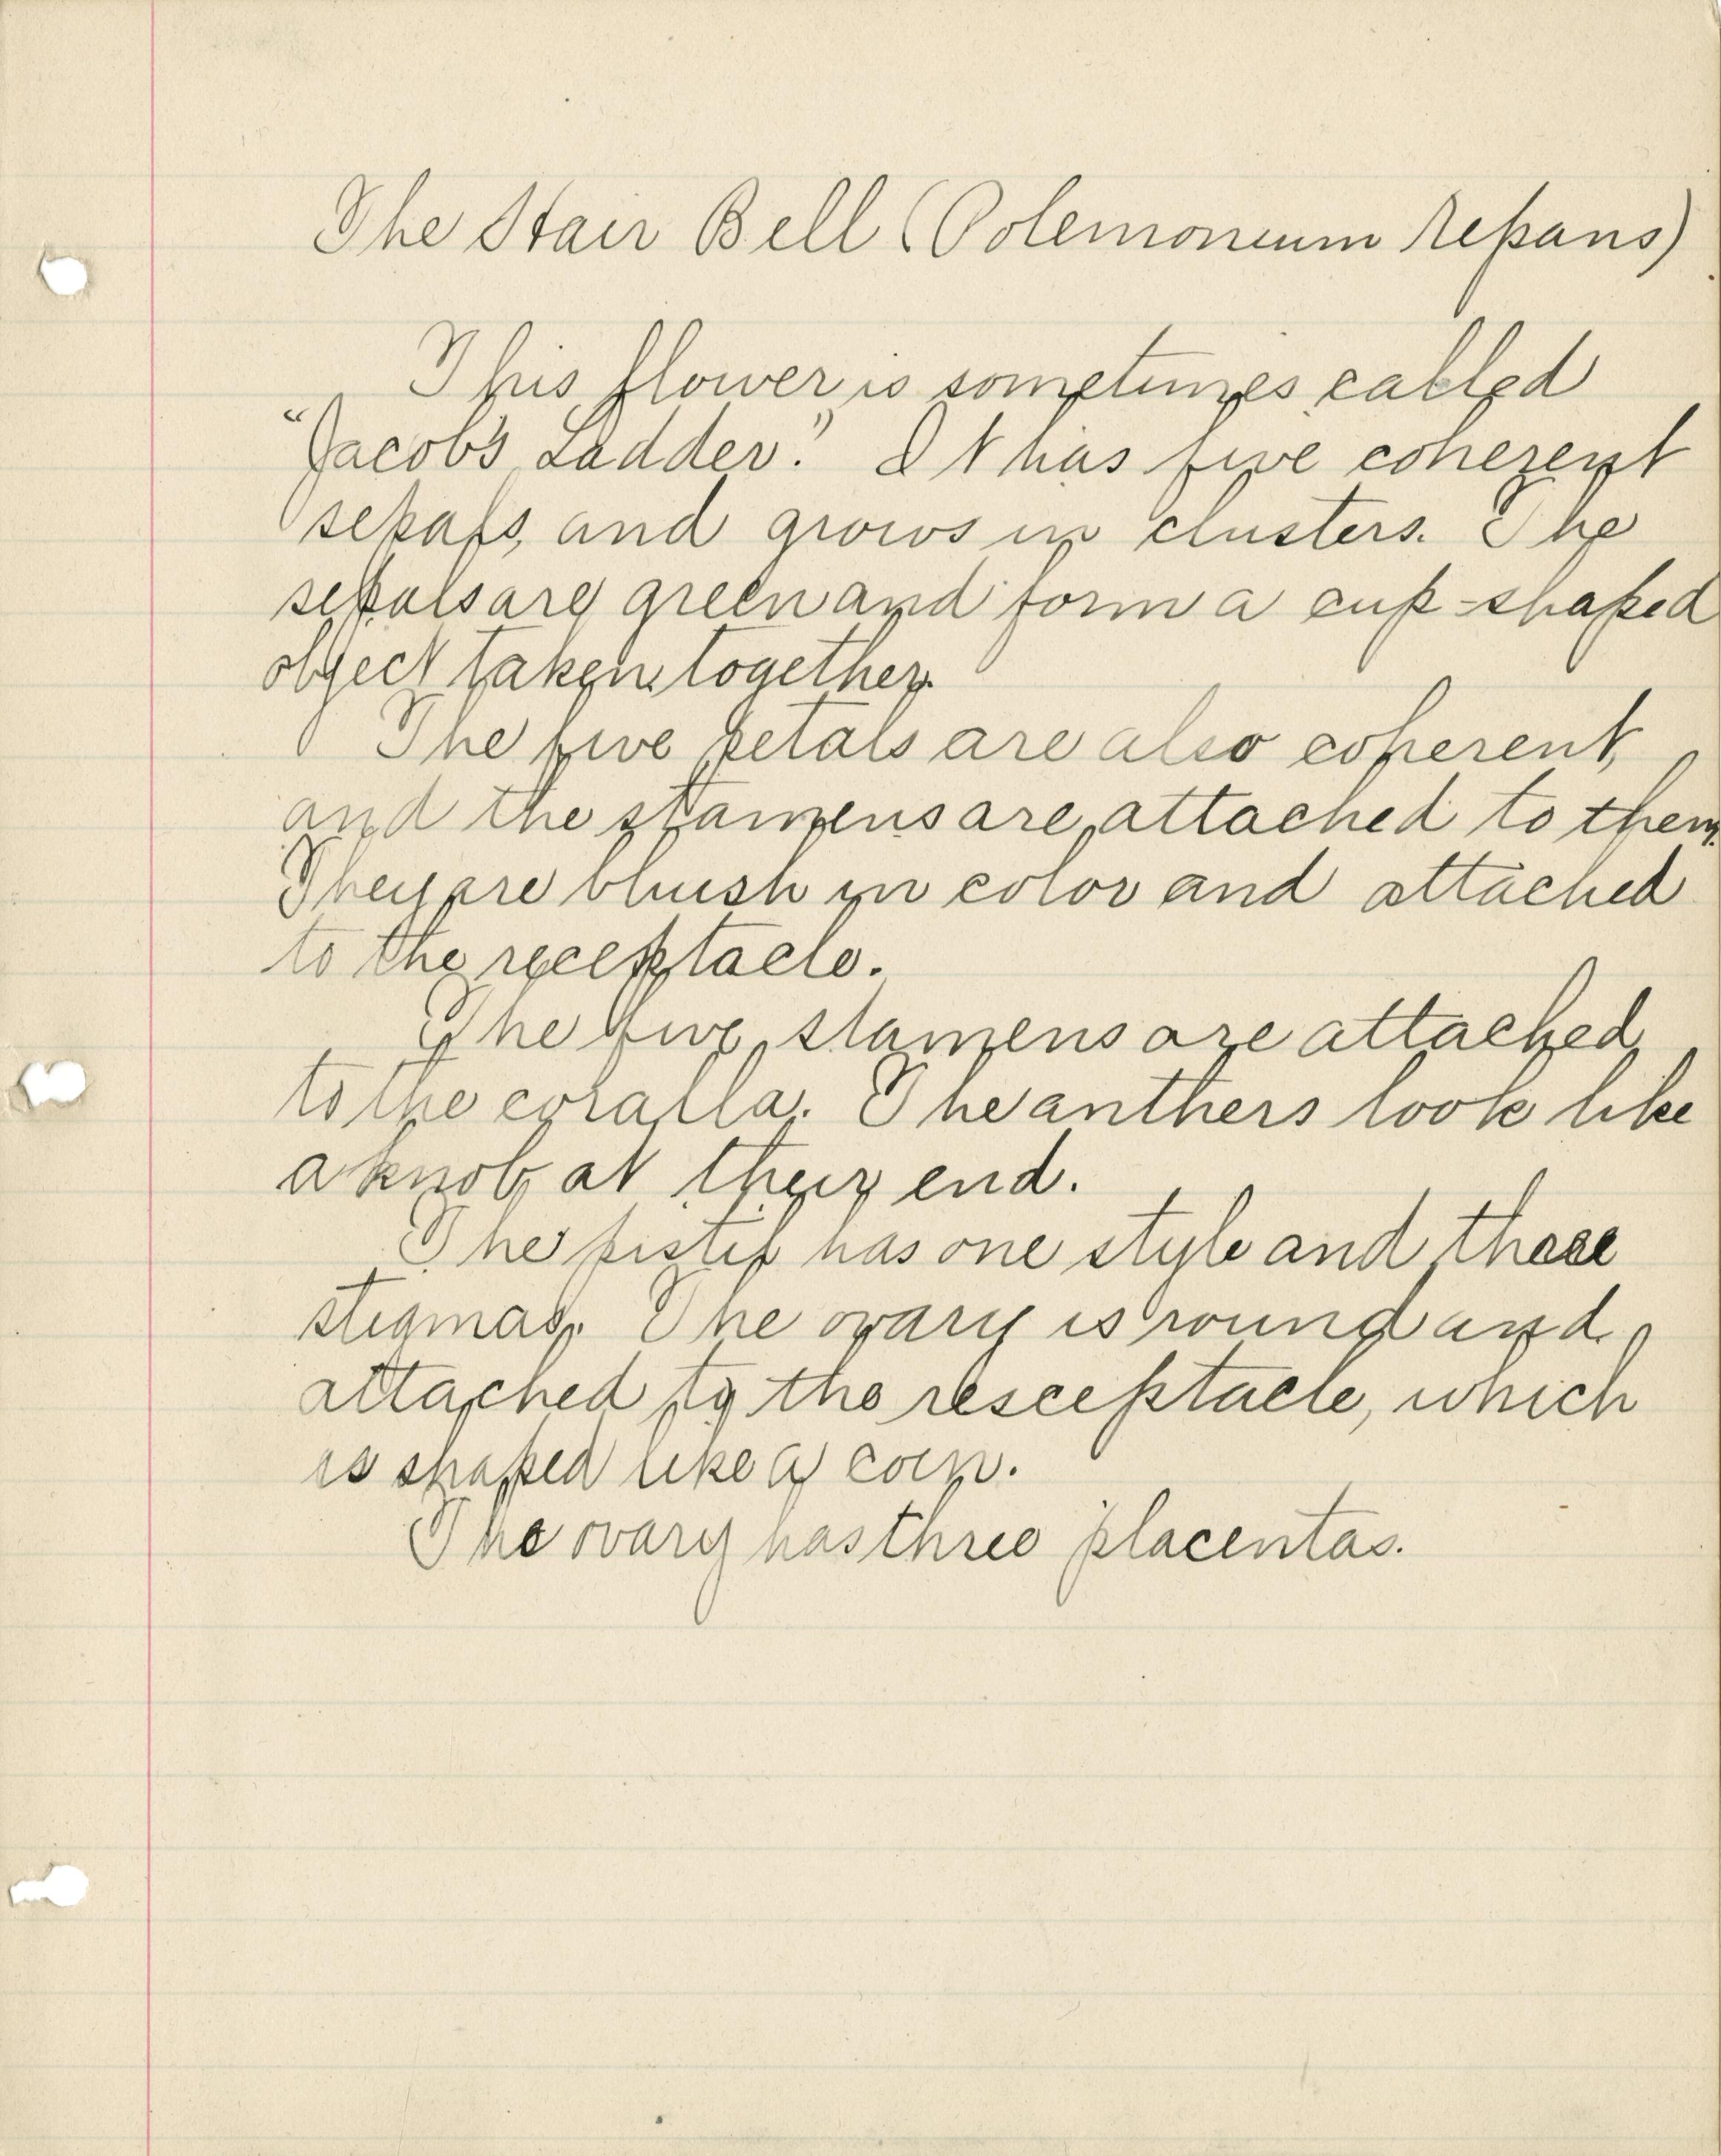 The Stair Bell (Polemonium repans)
This flower is sometimes called
"Jacob's Ladder." It has five coherent
sepals, and grows in clusters. The
sepals are green and form a cup-shaped
object taken together.
The five petals are also coherent,
and the stamens are attached to them.
They are bluish in color and attached
to the receptacle.
The five stamens are attached
to the coralla. The anthers look like
a knob at their end.
The pistil has one style and three
stigmas. The ovary is round and
attached to the resceptacle, which
is shaped like a coin.
The ovary has three placentas.